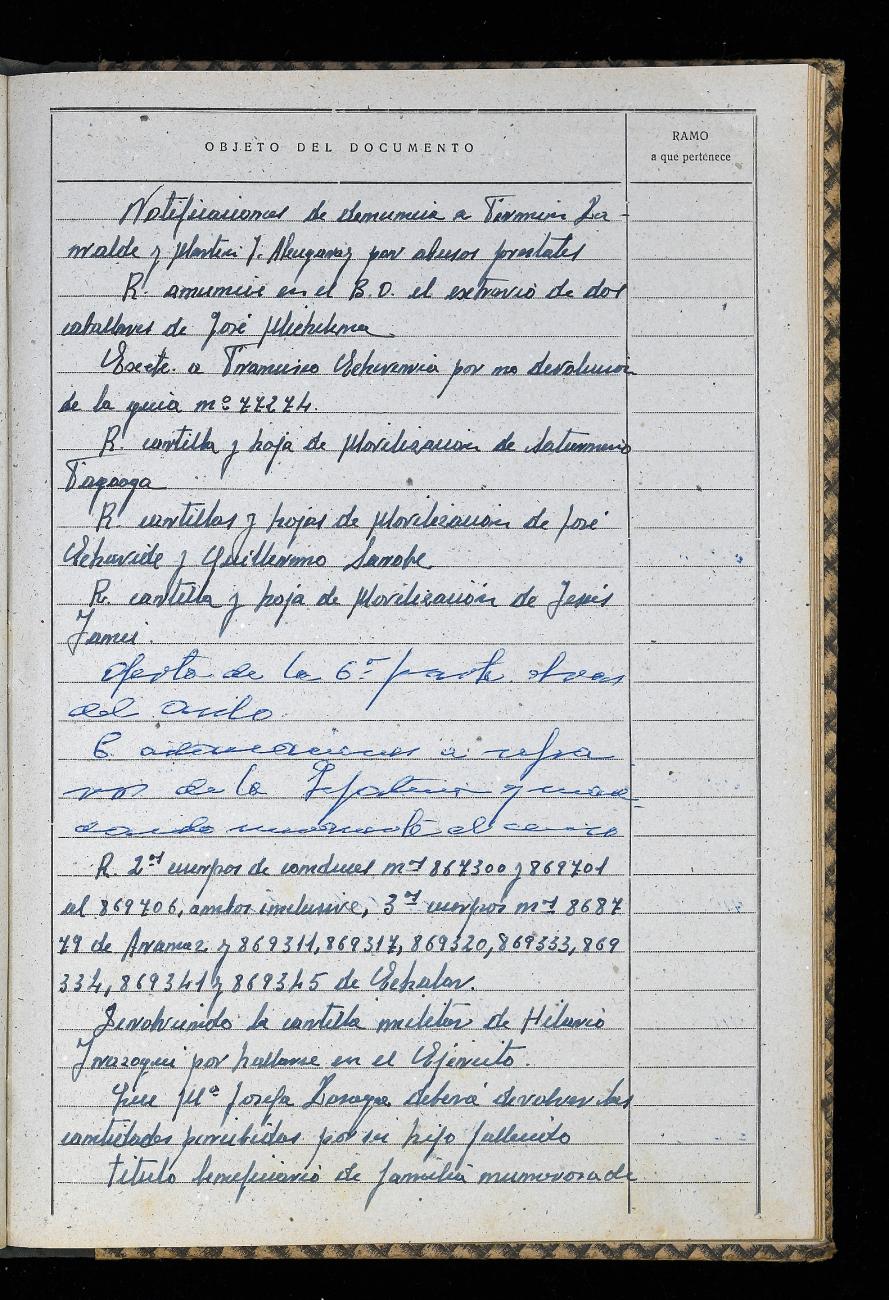 OBJETO DEL DOCUMENTO
RAMO
a que pertenece
Notificaciones de denuncia a Fermin La-
rralde y Martin J. por abusos forestales
R. anuncie en el B.O. el extravio de dos
caballares de José Michelena
Excte. a Francisco Echeverria por no devolucion
de la guia nº 77274.
R. cartilla y hoja de Movilizacion de Saturnino
R. cartillas y hojas de Movilización de José
Echavide y Guillermo
R. cartilla y hoja de Movilización de Jesús
Oferta de la 6ª parte obras
del Asilo
de la y
el
R. 2os cuerpos de conduces nos 867300 y 869701
al 869706, ambos inclusive, 3os cuerpos nos 8687
79 de Aranaz y 869311, 869317, 869320, 869333, 869
334, 869341 y 869345 de Echalar.
Devolviendo la cartilla militar de Hilario
Irazoqui por hallarse en el Ejército.
Que Mª Josefa deberá devolver las
cantidades percibidas por su hijo fallecido
Titulo beneficiario de familia numerosa de